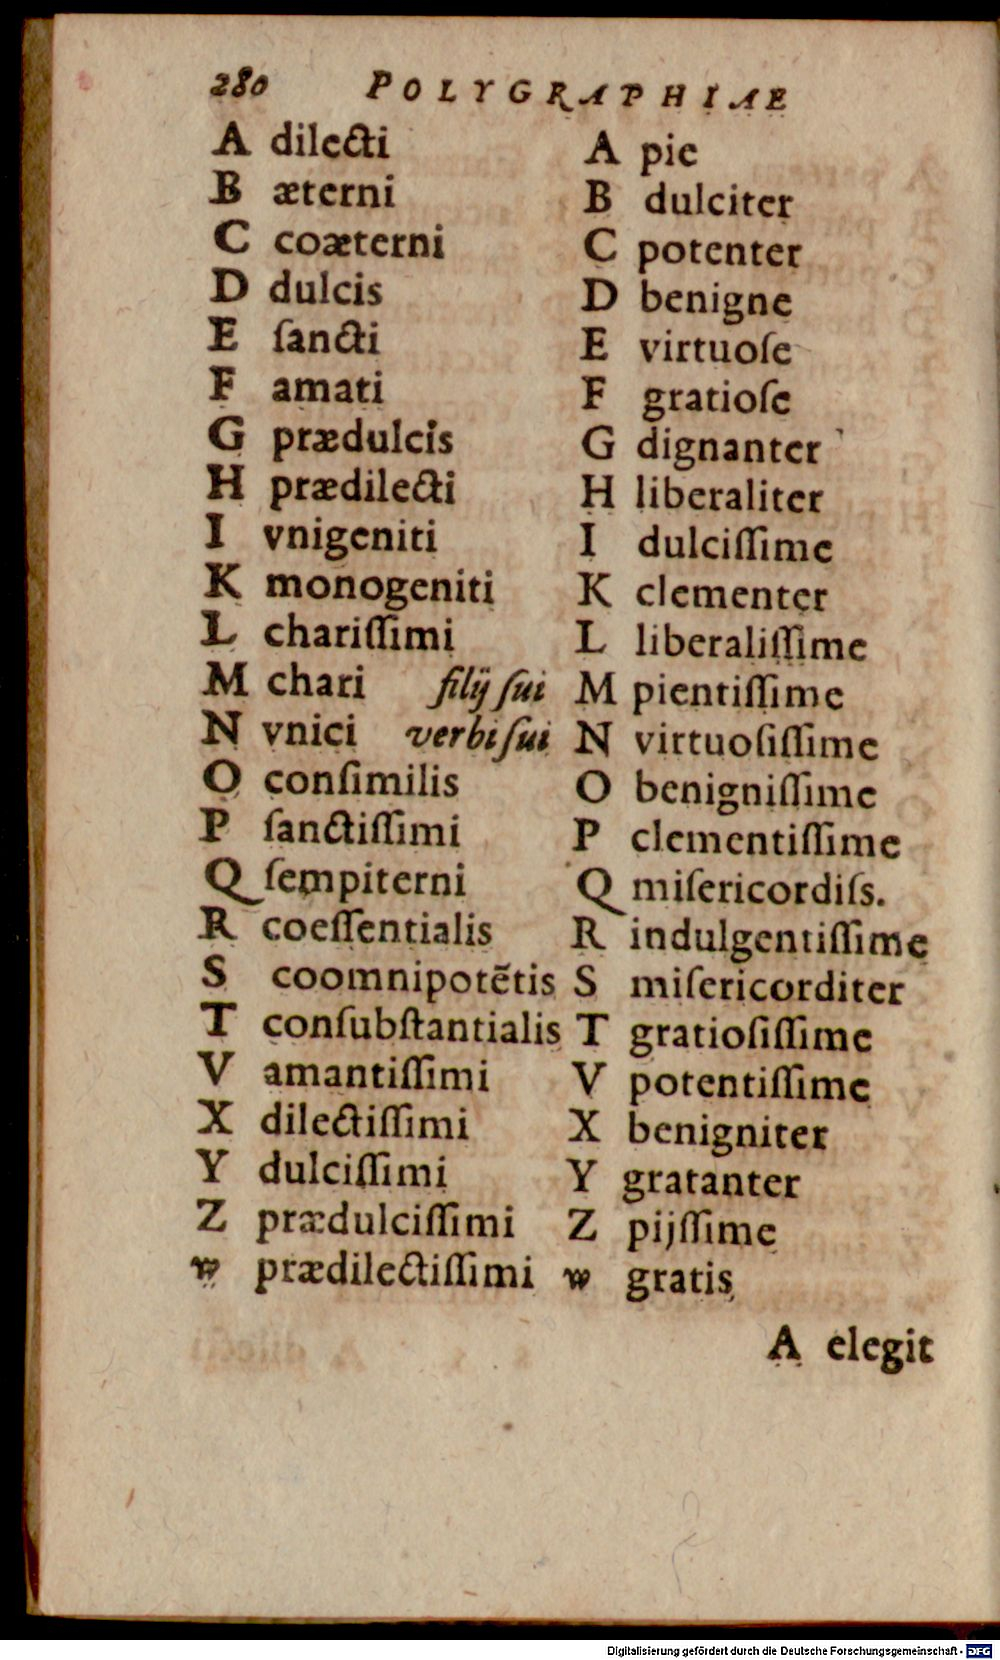 280 POLYGRAPHIAE
A dilecti
B æterni
C coæterni
D dulcis
E ſancti
F amati
G prædulcis
H prædilecti
I vnigeniti
K monogeniti
L chariſſimi
M chari filij ſui
N vnici verbi ſui
O conſimilis
P ſanctiſſimi
Q ſempiterni
R coeſſentialis
S coomnipotẽtis
T conſubſtantialis
V amantiſſimi
X dilectiſſimi
Y dulciſſimi
Z prædulciſſimi
w prædilectiſſimi
A pie
B dulciter
C potenter
D benigne
E virtuoſe
F gratioſe
G dignanter
H liberaliter
I dulciſſime
K clementer
L liberaliſſime
M pientiſſime
N virtuoſiſſime
O benigniſſime
P clementiſſime
Q miſericordiſs.
R indulgentiſſime
S miſericorditer
T gratioſiſſime
V potentiſſime
X benigniter
Y gratanter
Z pijſſime
w gratis
A elegit
Digitalisierung gefördert durch die Deutsche Forschungsgemeinschaft - DFG